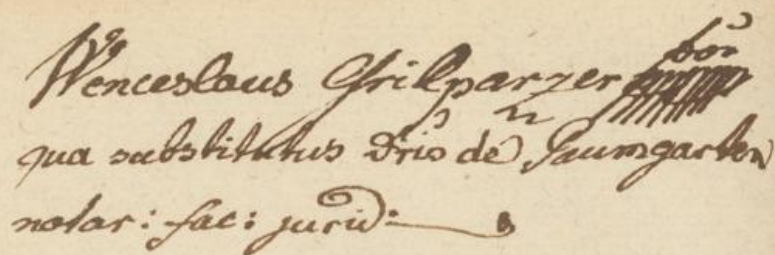 Wenceslaus Grilparzer
qua substitutus Dris de Paumgarten
notar: fac: jurid: